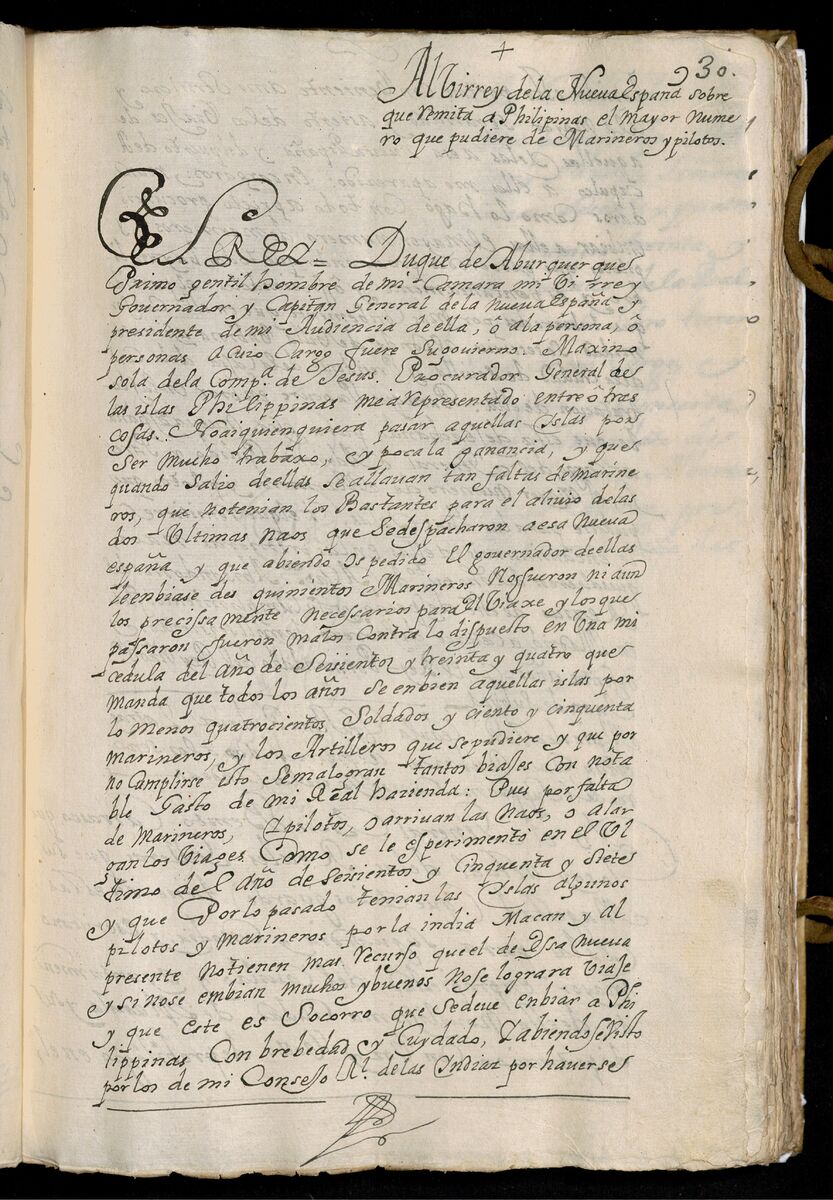 +
30.
Al Virrey dela Nueva España sobre
que remita a Philipinas el mayor nume
ro que pudiere de Marineros y pilotos.
El Rey = Duque de Alburquerque
Primo gentil hombre de mi Camara mi Vi rrey
Governador y Capitan General dela nueva España y
presidente de mi Audiencia de ella, ô ala persona, ô
personas a Cuio Cargo fuere Sugovierno. Maximo
sola dela Comp.ª de Jesus. Procurador General de
las islas Philippinas mea representado entre ôtras
cosas. Noaiquienquiera pasar aquellas Islas por
ser mucho trabaxo, y pocala ganancia, y que
quando salio deellas se allavan tan faltas de marine
ros, que notenian los Bastantes para el alivio delas
dos Vltimas naos que sedespacharon aesa nueva
españa y que abiendo os pedido El governador deellas
leenbiase des quinientos Marineros Nofueron ni aun
los precissa mente necessarios para El Viaxe y los que
passaron fueron malos contra lo dispuesto en Vna mi
cedula del Año de Seisientos y treinta y quatro que
manda que todos los años se enbien aquellas islas por
lo menos quatrocientos Soldados y ciento y cinquenta
marineros, y los Artilleros que sepudiere y que por
no cumplirse esto Semalogran tantos biajes con nota
ble Gasto de mi Real hazienda: Pues por falta
de Marineros, Y pilotos, o arrivan las Naos, o alar
gan los Viages Como se le esperimentó en el Vl
timo del Año de Seisientos y Cinquenta y Siete
y que Por lo pasado tenian las Yslas algunos
pilotos y marineros por la india Macan y al
presente notienen mas recurso que el de Essa nueva
y si nose embian muchos y buenos nose lograra Viaje
y que este es Socorro que sedeve enbiar a Phi
lippinas Con brebedad y Cuydado, Yabiendose Visto
por los de mi Consejo Rl. delas Indias por haverse